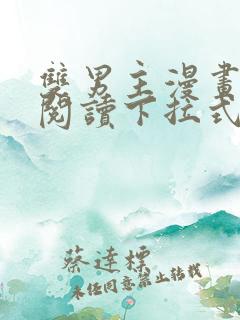 雙男主漫畫
閱讀下拉式
蔡達標
未經同意禁止轉載